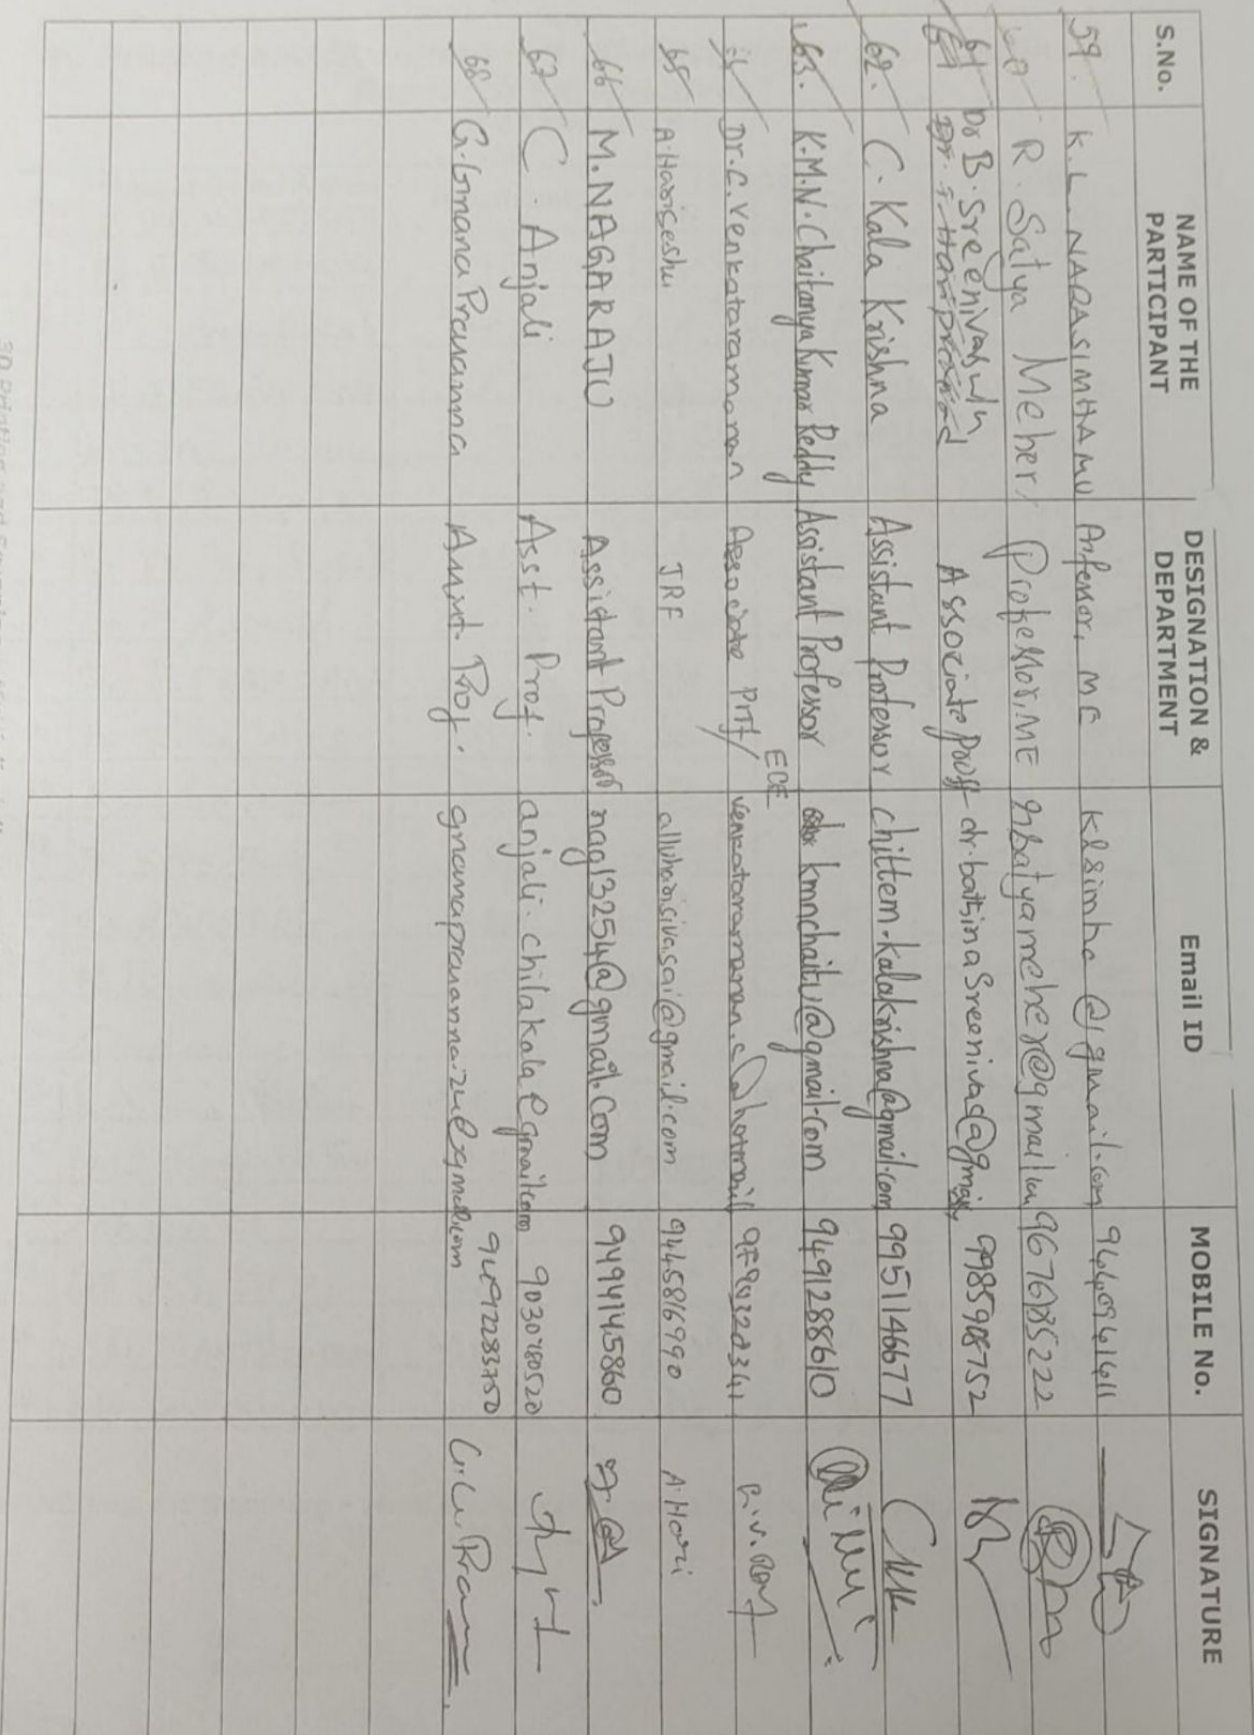 S.No. NAME OF THE PARTICIPANT DESIGNATION & DEPARTMENT Email ID MOBILE No. SIGNATURE
59. K.L. NARASIMHAMU Professor, ME klsimha@gmail.com
R. Satya Meher Professor, ME rsatyameher@gmail.com 9676185222
61 Dr B. Sreenivasulu Associate Proff dr.bathinaSreenivas@gmail 9985908752
62. C. Kala Krishna Assistant Professor chittem.kalakrishna@gmail.com 9951146677
63. K.M.N. Chaitanya Kumar Reddy Assistant Professor kmnchaitu@gmail.com 9491288610
Dr. C. Venkataramanan Associate Prof/ ECE venkataramanan.c@hotmail
65 A. Hariseshu JRF alluharisivasai@gmail.com 9445816990 A. Hari
66 M. NAGARAJU Assistant Professor nag13254@gmail.com 9494145860
67 C. Anjali Asst. Prof. anjali.chilakala@gmail.com 9030480520
68 G. Gnana Prasanna Assist. Prof.
3D Printing and